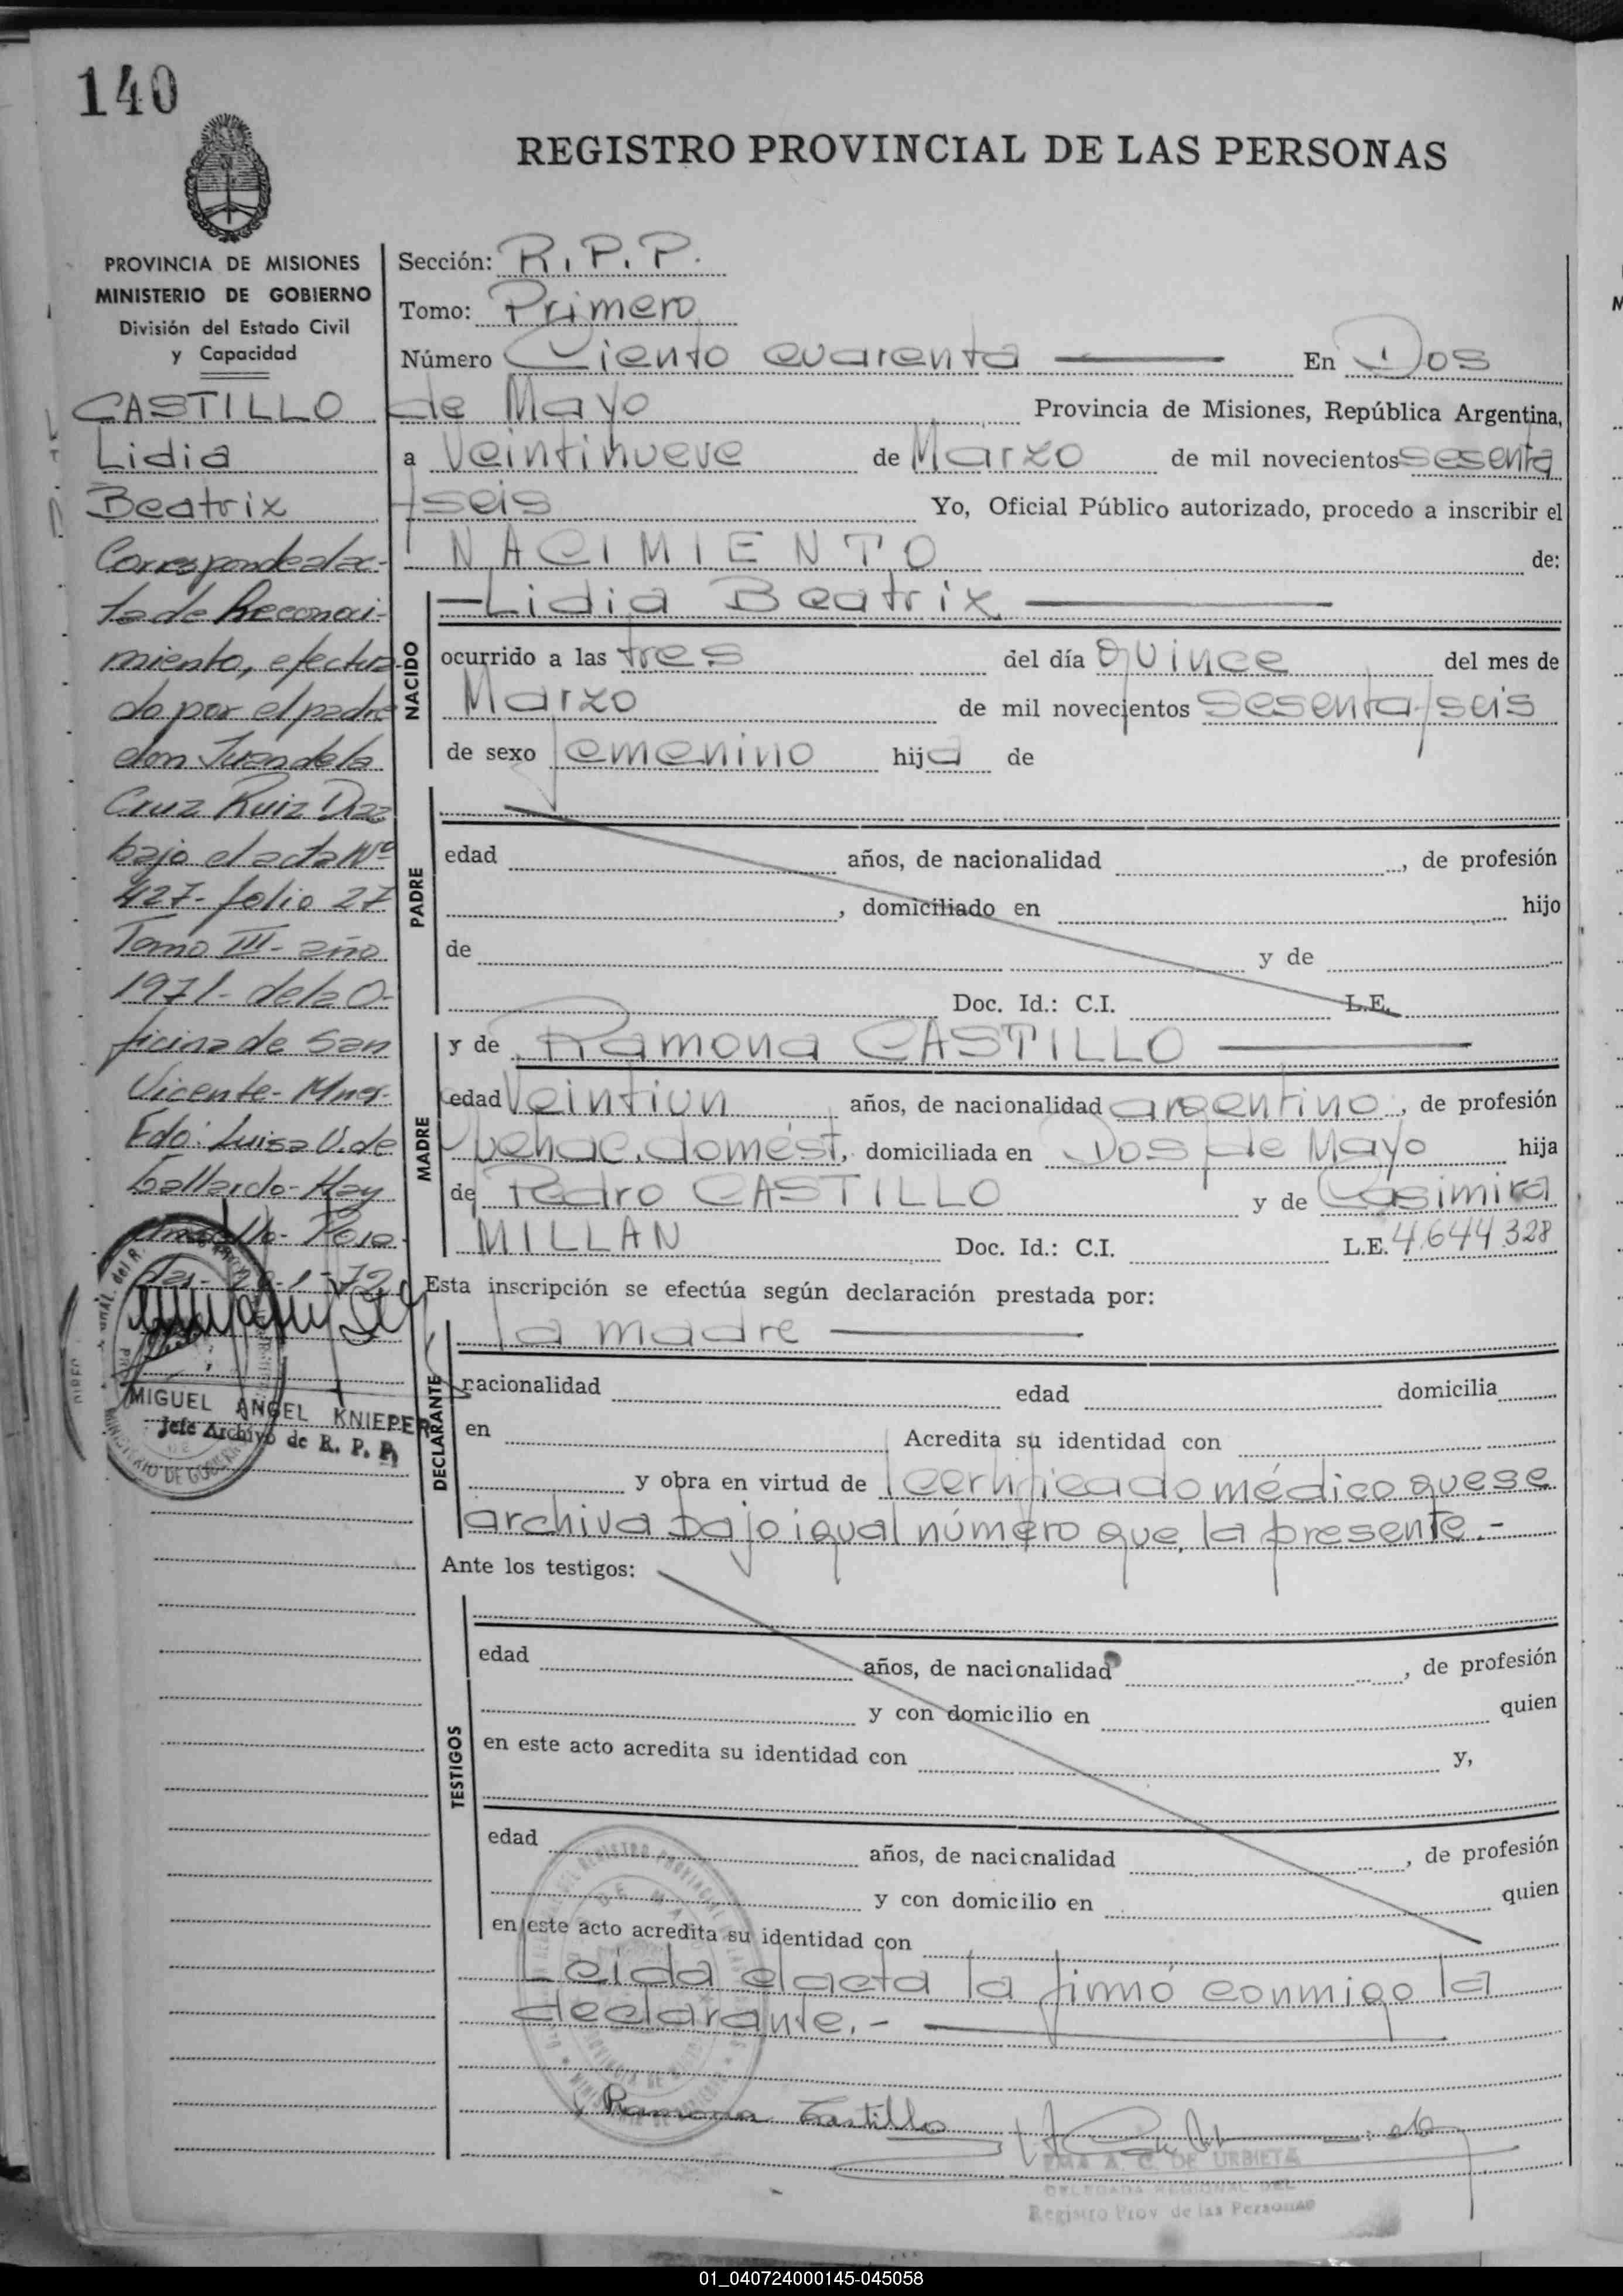 140
REGISTRO PROVINCIAL DE LAS PERSONAS
PROVINCIA DE MISIONES
MINISTERIO DE GOBIERNO
División del Estado Civil
y Capacidad
CASTILLO
Lidia
Beatrix
Corresponde al ac-
ta de Reconoci-
miento, efectua-
do por el padre
don Juan de la
Cruz Ruiz Diaz
bajo el acta Nº
427- folio 27
Tomo III- año
1971- de la O-
ficina de San
Vicente- Mnes-
Fdo: Luisa V. de
Gallardo- Hay
MIGUEL ANGEL KNIEPER
Jefe Archivo de R. P. P.
Sección: R. P. P.
Tomo: Primero
Número Ciento cuarenta En Dos
de Mayo Provincia de Misiones, República Argentina,
a Veintinueve de Marzo de mil novecientos sesenta
y seis Yo, Oficial Público autorizado, procedo a inscribir el
NACIMIENTO de:
NACIDO
Lidia Beatrix
ocurrido a las tres del día quince del mes de
Marzo de mil novecientos sesenta y seis
de sexo femenino hija de
PADRE
edad años, de nacionalidad , de profesión
, domiciliado en hijo
de y de
Doc. Id.: C.I. L.E.
MADRE
y de Ramona CASTILLO
edad Veintiun años, de nacionalidad argentino, de profesión
quehac. domést, domiciliada en Dos de Mayo hija
de Pedro CASTILLO y de Casimira
MILLAN Doc. Id.: C.I. L.E. 4.644.328
Esta inscripción se efectúa según declaración prestada por:
DECLARANTE
la madre
nacionalidad edad domicilia
en Acredita su identidad con
y obra en virtud de certificado médico que se
archiva bajo igual número que la presente.-
Ante los testigos:
TESTIGOS
edad años, de nacionalidad , de profesión
y con domicilio en quien
en este acto acredita su identidad con y,
edad años, de nacionalidad , de profesión
y con domicilio en quien
en este acto acredita su identidad con
Leída el acta la firmó conmigo la
declarante.-
Ramona Castillo
EMA A. C. DE URBIETA
DELEGADA REGIONAL DEL
Registro Prov de las Personas
01_040724000145-045058